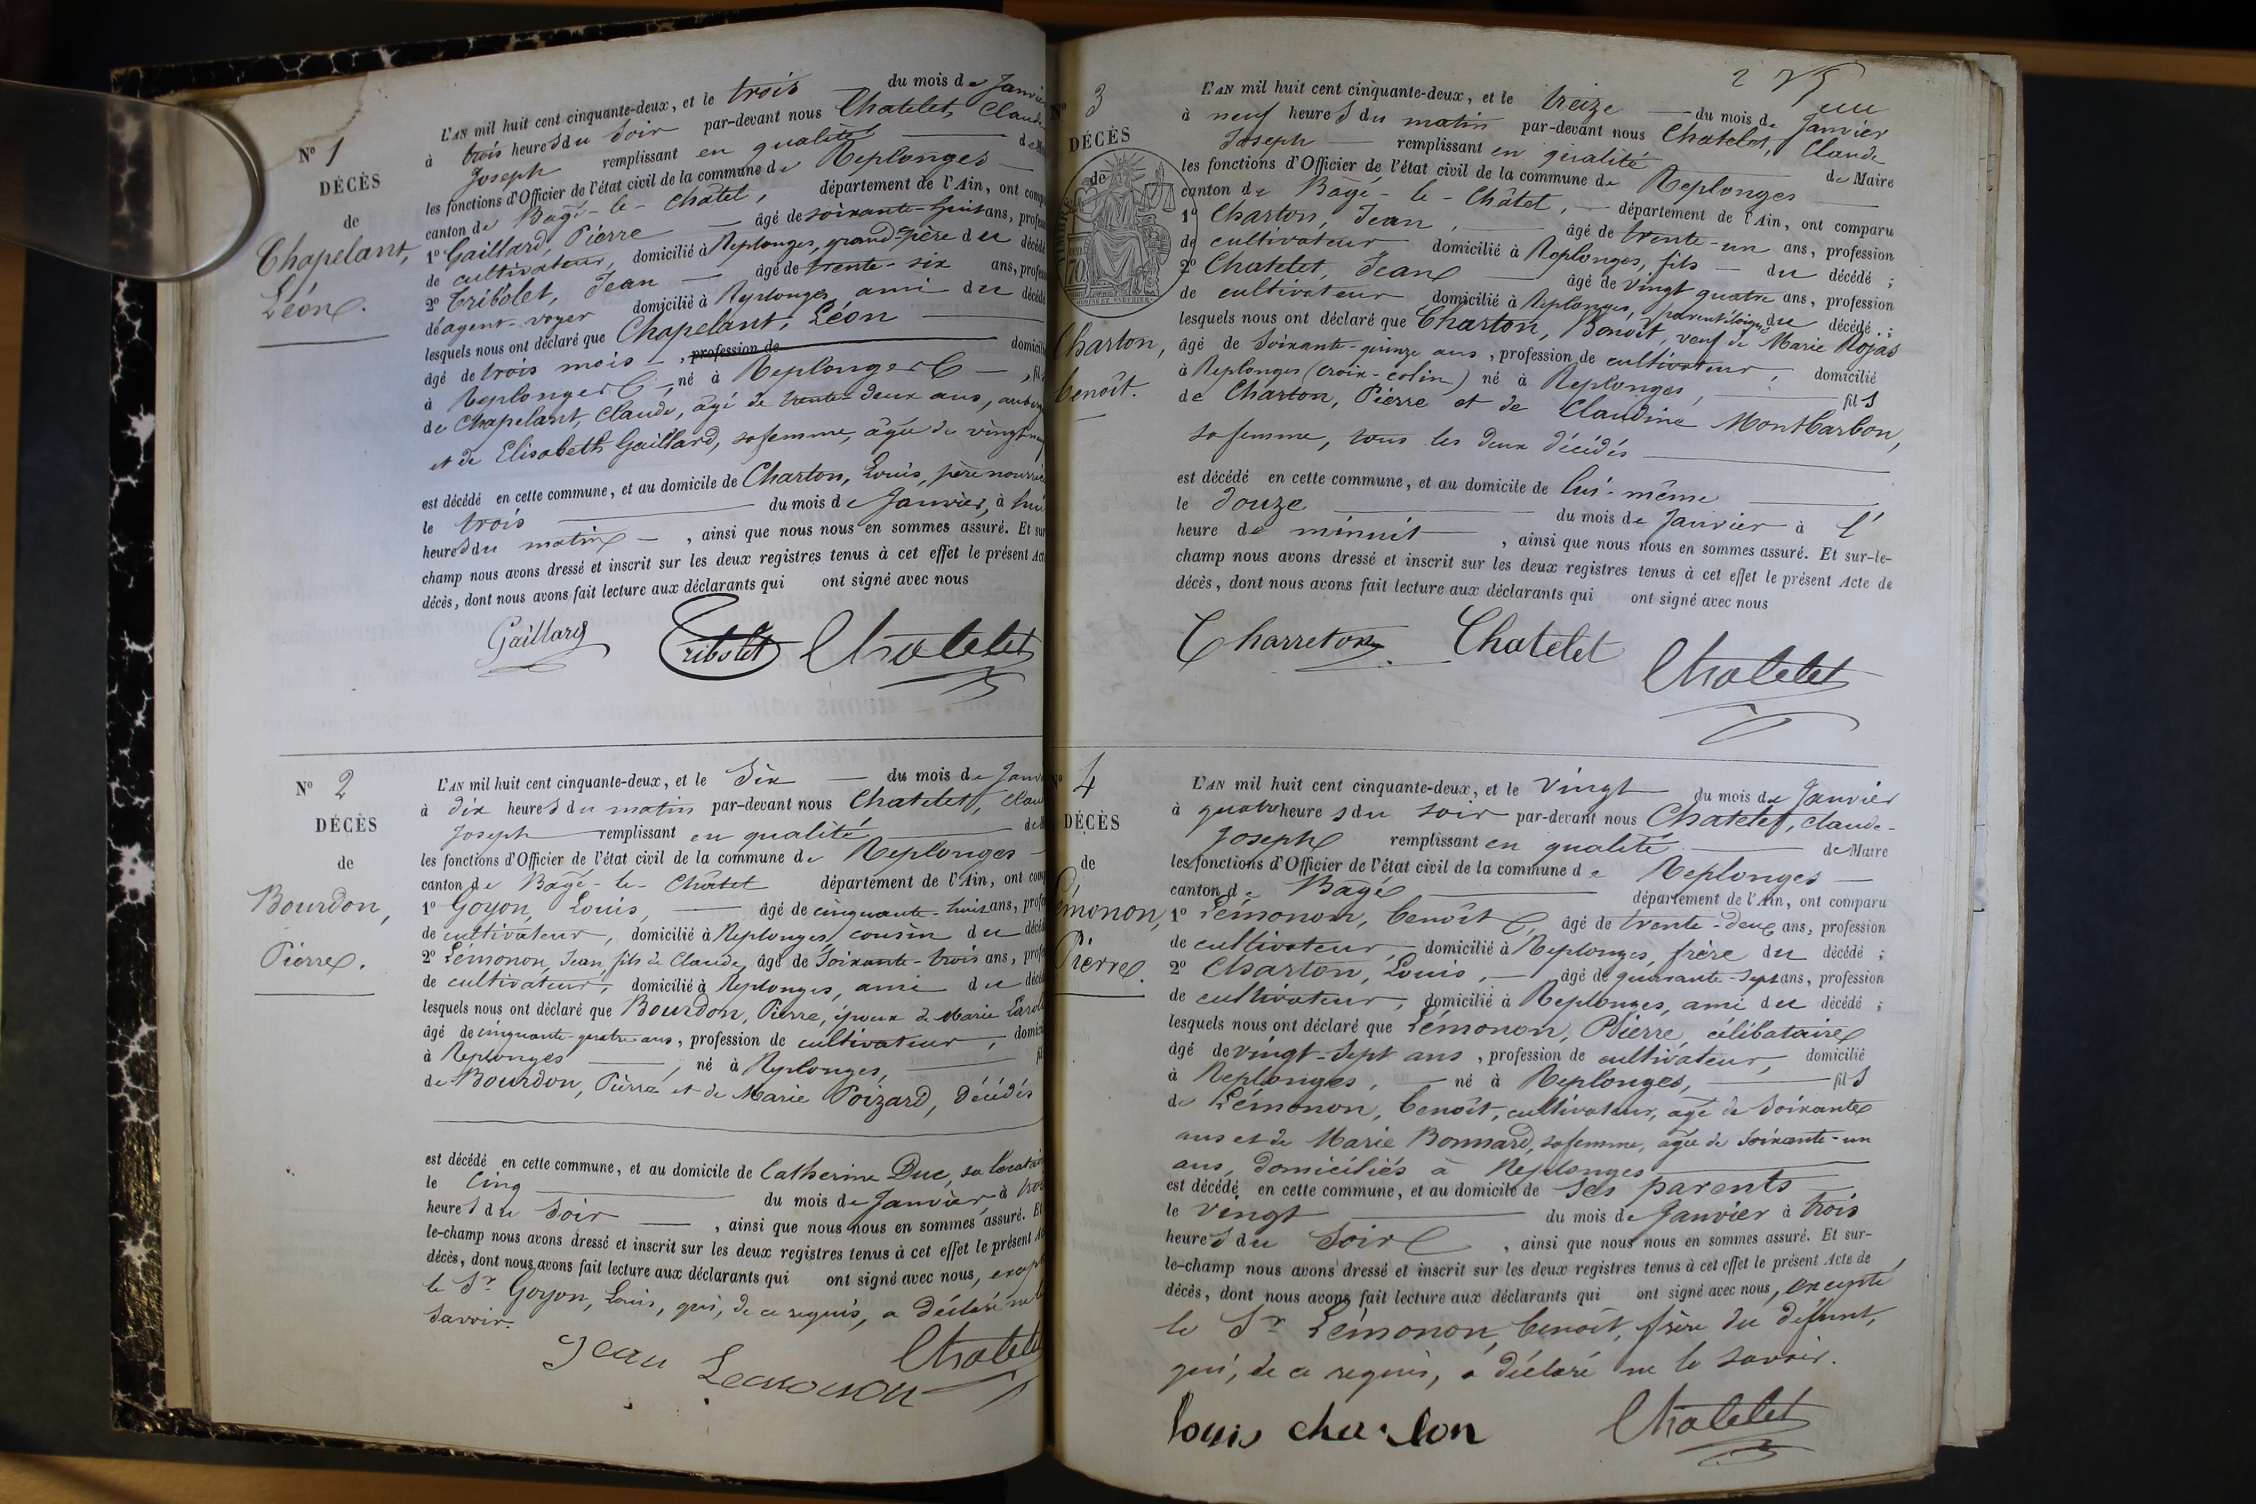 N° 1
DÉCÈS
de
Chapelant,
Léon.
L'AN mil huit cent cinquante-deux, et le trois du mois de Janvier
à trois heures du soir par-devant nous Chatelet, Claude
Joseph remplissant en qualité de
les fonctions d'Officier de l'état civil de la commune de Replonges
canton de Bâgé-le-Châtel, département de l'Ain, ont
1° Gaillard, Pierre âgé de soixante-huit ans,
de cultivateur, domicilié à Replonges, grand-père du
2° Tribolet, Jean âgé de trente-six ans,
de agent-voyer domicilié à Replonges, ami du
lesquels nous ont déclaré que Chapelant, Léon
âgé de trois mois, profession de
à Replonges, né à Replonges
de Chapelant, Claude, âgé de trente-deux ans,
et de Elisabeth Gaillard, sa femme, âgée de
est décédé en cette commune, et au domicile de Charton, Louis, père
le trois du mois de Janvier, à
heures du matin, ainsi que nous nous en sommes assuré. Et sur
champ nous avons dressé et inscrit sur les deux registres tenus à cet effet le présent
décès, dont nous avons fait lecture aux déclarants qui ont signé avec nous
Gaillard Tribolet Chatelet
N° 2
DÉCÈS
de
Bourdon,
Pierre.
L'AN mil huit cent cinquante-deux, et le six du mois de
à dix heures du matin par-devant nous Chatelet,
Joseph remplissant en qualité
les fonctions d'Officier de l'état civil de la commune de Replonges
canton de Bâgé-le-Châtel département de l'Ain, ont
1° Goyon, Louis, âgé de cinquante-huit ans,
de cultivateur, domicilié à Replonges, cousin du
2° Lémonon, Jean, fils de Claude, âgé de soixante-trois ans,
de cultivateur, domicilié à Replonges, ami du
lesquels nous ont déclaré que Bourdon, Pierre, époux de Marie
âgé de cinquante-quatre ans, profession de cultivateur,
à Replonges, né à Replonges,
de Bourdon, Pierre et de Marie Poizard, décédés
est décédé en cette commune, et au domicile de Catherine Duc, sa
le cinq du mois de Janvier à
heures du soir, ainsi que nous nous en sommes assuré.
le-champ nous avons dressé et inscrit sur les deux registres tenus à cet effet le présent
décès, dont nous avons fait lecture aux déclarants qui ont signé avec nous,
le Sr Goyon, Louis, qui, de ce requis, a déclaré ne
savoir.
Jean Lemonon Chatelet
N° 3
DÉCÈS
de
Charton,
Benoît.
L'AN mil huit cent cinquante-deux, et le treize du mois de Janvier
à neuf heures du matin par-devant nous Chatelet, Claude
Joseph remplissant en qualité de Maire
les fonctions d'Officier de l'état civil de la commune de Replonges
canton de Bâgé-le-Châtel, département de l'Ain, ont comparu
1° Charton, Jean, âgé de trente-un ans, profession
de cultivateur domicilié à Replonges, fils du décédé ;
2° Chatelet, Jean âgé de vingt quatre ans, profession
de cultivateur domicilié à Replonges, parent éloigné du décédé ;
lesquels nous ont déclaré que Charton, Benoît, veuf de Marie Rojas
âgé de soixante-quinze ans, profession de cultivateur, domicilié
à Replonges (Croix-colin) né à Replonges, fils
de Charton, Pierre et de Claudine Montbarbon,
sa femme, tous les deux décédés
est décédé en cette commune, et au domicile de lui-même
le douze du mois de Janvier à l'
heure de minuit, ainsi que nous nous en sommes assuré. Et sur-le-
champ nous avons dressé et inscrit sur les deux registres tenus à cet effet le présent Acte de
décès, dont nous avons fait lecture aux déclarants qui ont signé avec nous
Charreton Chatelet
Chatelet
N° 4
DÉCÈS
de
Lémonon,
Pierre.
L'AN mil huit cent cinquante-deux, et le vingt du mois de Janvier
à quatre heures du soir par-devant nous Chatelet, Claude-
Joseph remplissant en qualité de Maire
les fonctions d'Officier de l'état civil de la commune de Replonges
canton de Bâgé département de l'Ain, ont comparu
1° Lémonon, Benoît, âgé de trente-deux ans, profession
de cultivateur, domicilié à Replonges, frère du décédé ;
2° Charton, Louis, âgé de quarante-sept ans, profession
de cultivateur, domicilié à Replonges, ami du décédé ;
lesquels nous ont déclaré que Lémonon, Pierre, célibataire
âgé de vingt-sept ans, profession de cultivateur, domicilié
à Replonges, né à Replonges, fils
de Lémonon, Benoît, cultivateur, âgé de soixante
ans et de Marie Bonnard, sa femme, âgée de soixante-un
ans, domiciliés à Replonges
est décédé en cette commune, et au domicile de ses parents
le vingt du mois de Janvier à trois
heures du soir, ainsi que nous nous en sommes assuré. Et sur-
le-champ nous avons dressé et inscrit sur les deux registres tenus à cet effet le présent Acte de
décès, dont nous avons fait lecture aux déclarants qui ont signé avec nous, excepté
le Sr Lémonon, Benoît, frère du défunt,
qui, de ce requis, a déclaré ne le savoir.
louis charlon Chatelet